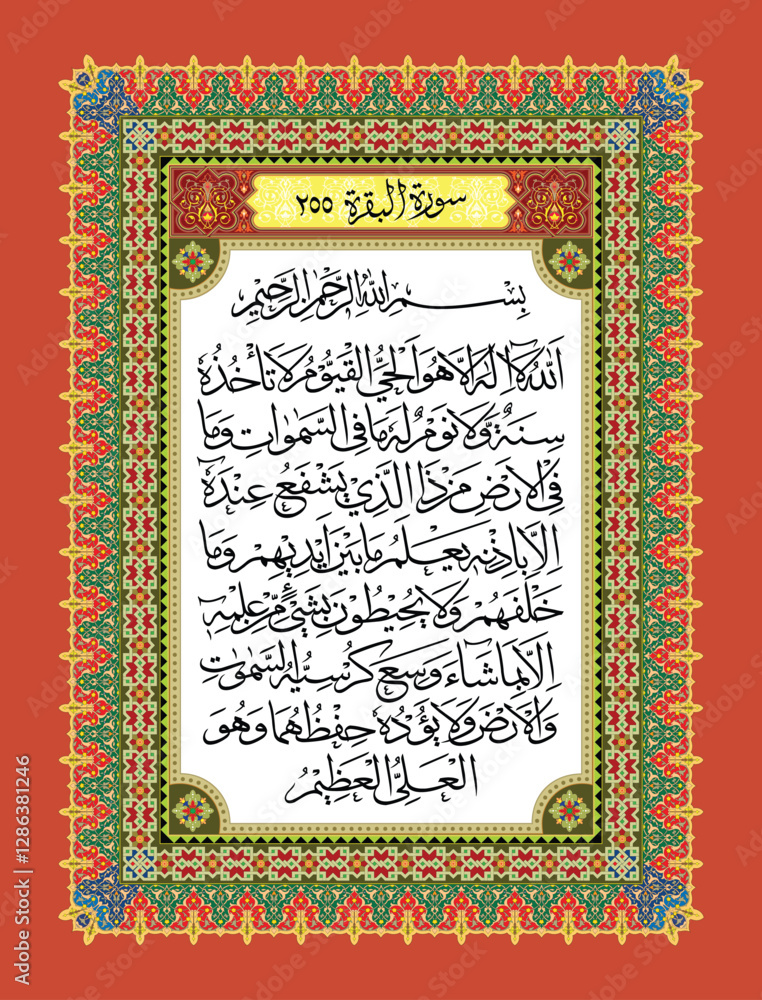 سورة البقرة ٢٥٥
بِسْمِ اللهِ الرَّحْمٰنِ الرَّحِيْمِ
اَللهُ لَآ اِلٰهَ اِلَّا هُوَ اَلْحَيُّ الْقَيُّوْمُ لَا تَأْخُذُهٗ
سِنَةٌ وَّلَا نَوْمٌ لَهٗ مَا فِى السَّمٰوٰتِ وَمَا
فِى الْاَرْضِ مَنْ ذَا الَّذِيْ يَشْفَعُ عِنْدَهٗٓ
اِلَّا بِاِذْنِهٖ يَعْلَمُ مَا بَيْنَ اَيْدِيْهِمْ وَمَا
خَلْفَهُمْ وَلَا يُحِيْطُوْنَ بِشَيْءٍ مِّنْ عِلْمِهٖٓ
اِلَّا بِمَا شَآءَ وَسِعَ كُرْسِيُّهُ السَّمٰوٰتِ
وَالْاَرْضَ وَلَا يَؤُدُهٗ حِفْظُهُمَا وَهُوَ
الْعَلِيُّ الْعَظِيْمُ
Adobe Stock | #1286381246
Adobe Stock